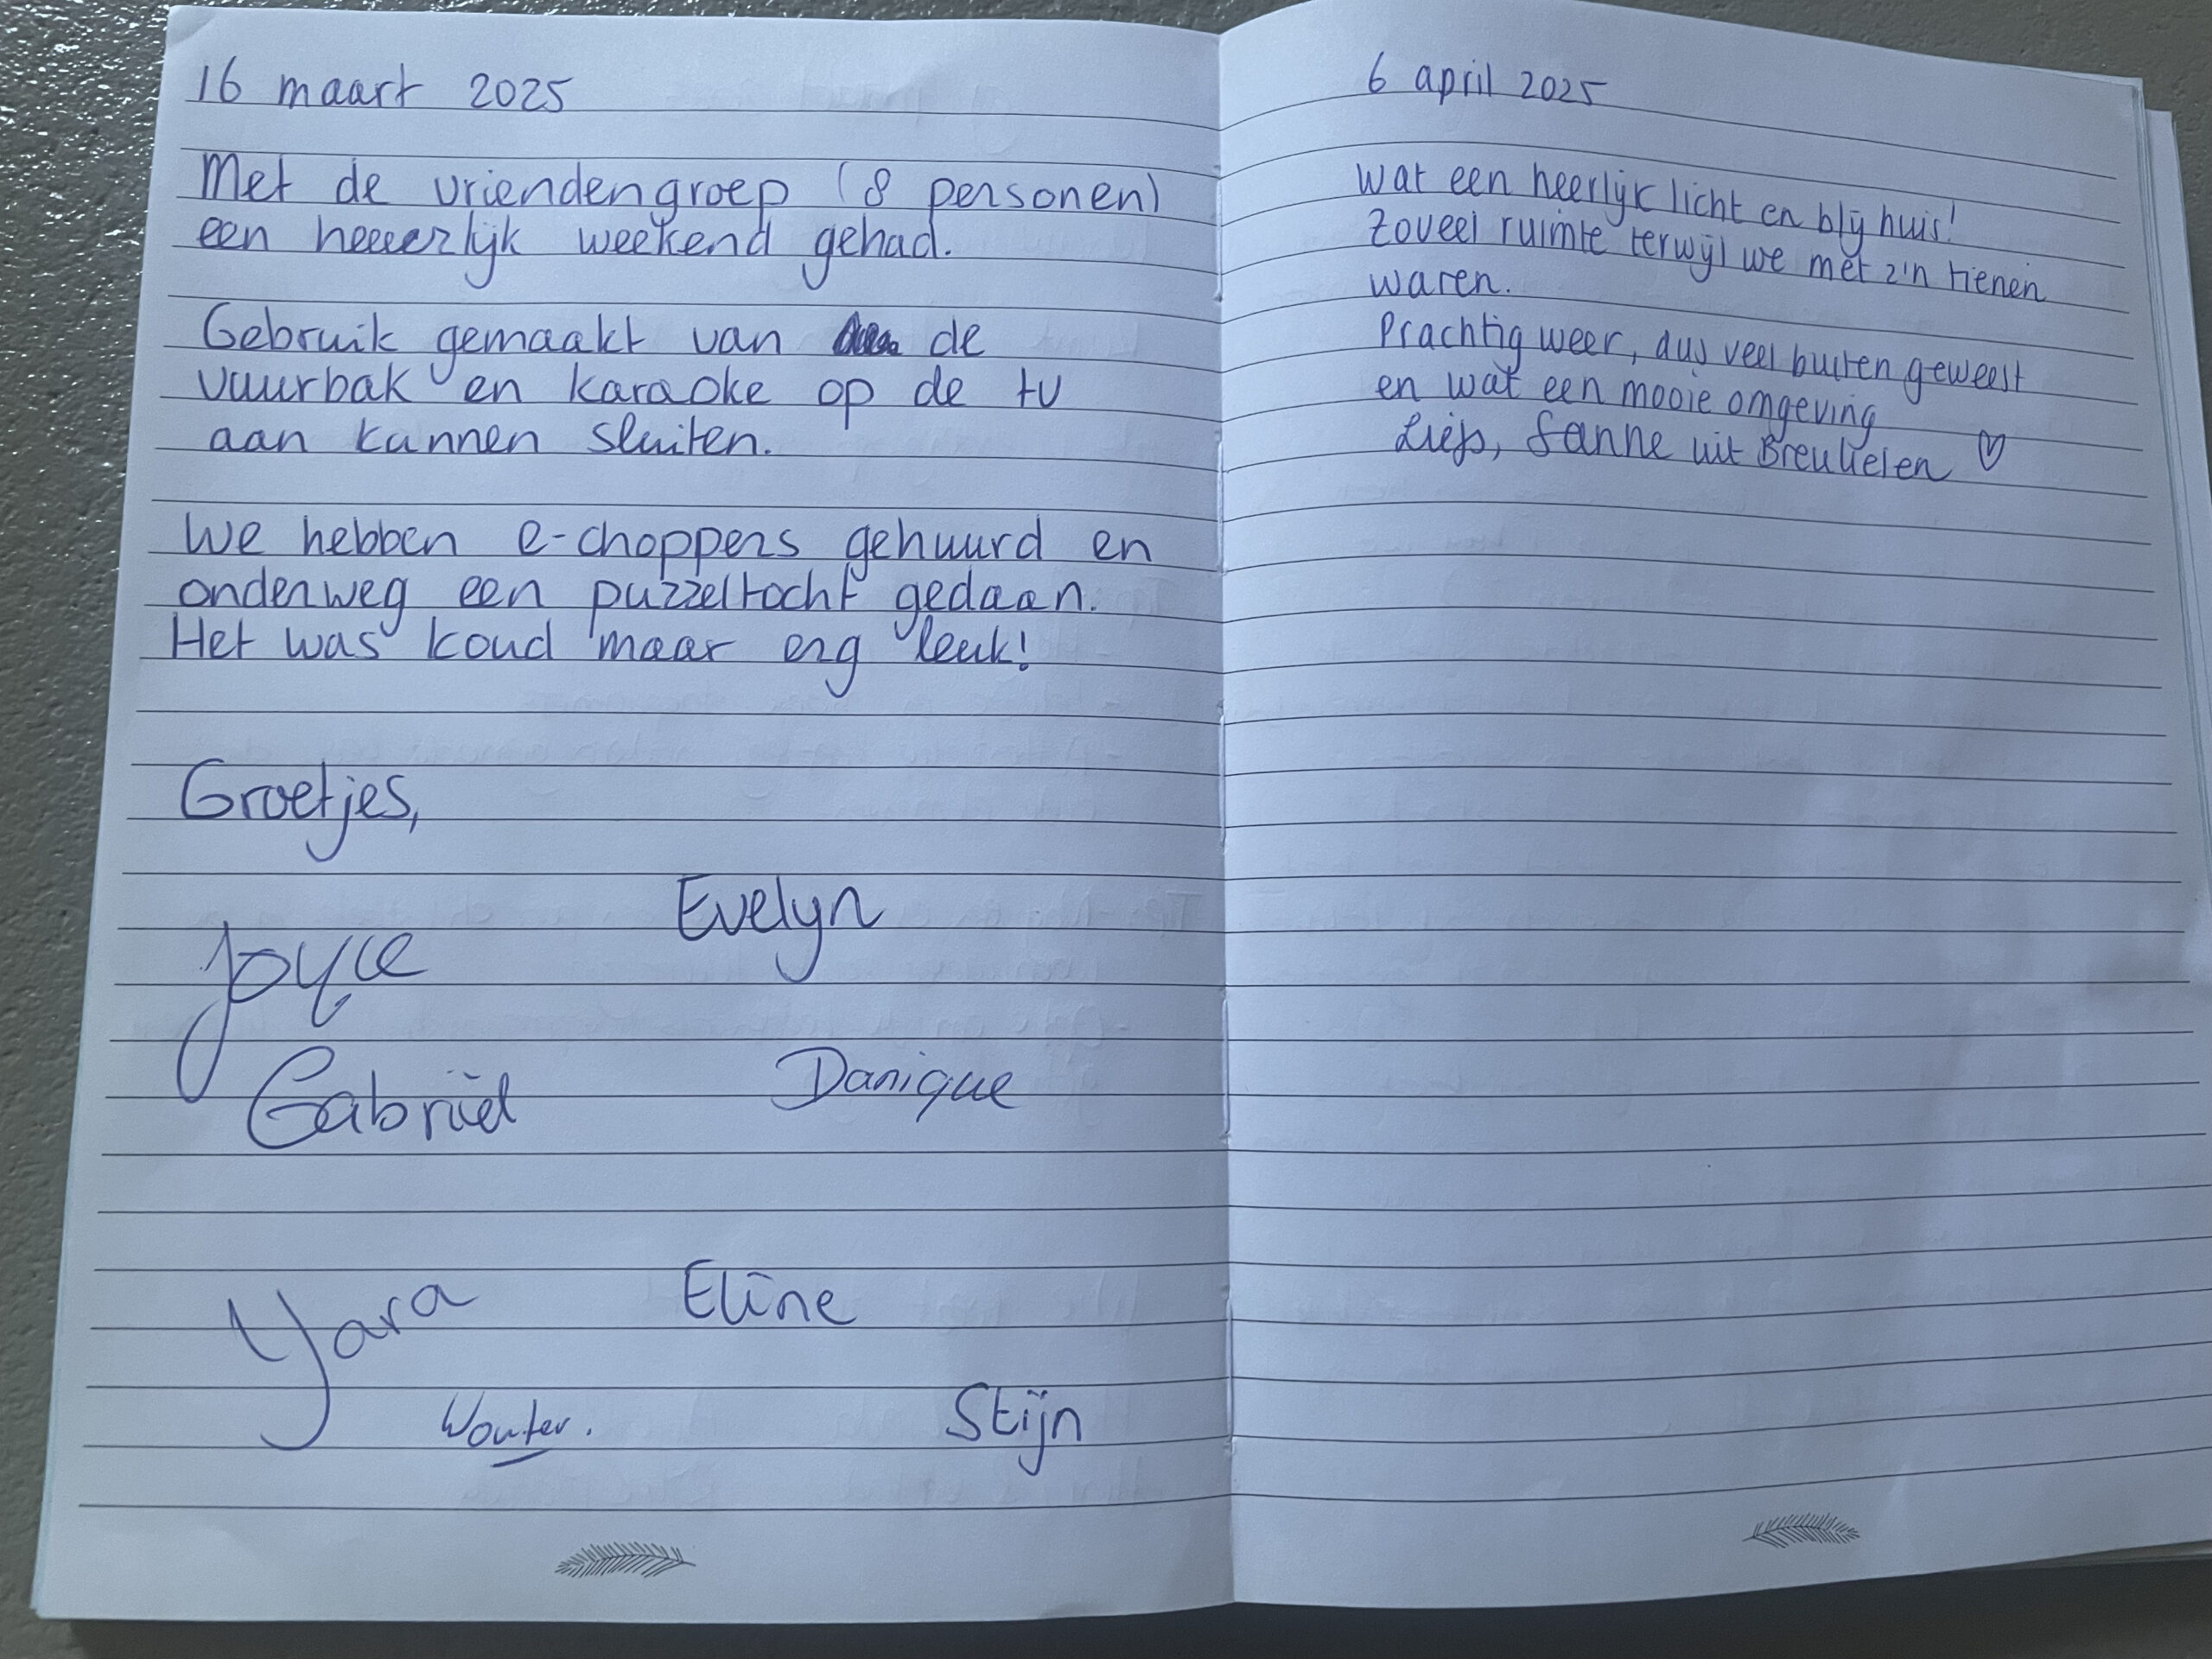 16 maart 2025
Met de vriendengroep (8 personen)
een heeeerlijk weekend gehad.
Gebruik gemaakt van de
vuurbak en karaoke op de tv
aan kunnen sluiten.
We hebben e-choppers gehuurd en
onderweg een puzzeltocht gedaan.
Het was koud maar erg leuk!
Groetjes,
Evelyn
Joyce
Danique
Gabriël
Eline
Yara
Stijn
Wouter.
6 april 2025
Wat een heerlijk licht en blij huis!
Zoveel ruimte terwijl we met z'n tienen
waren.
Prachtig weer, dus veel buiten geweest
en wat een mooie omgeving
Liefs, Sanne uit Breukelen ♡